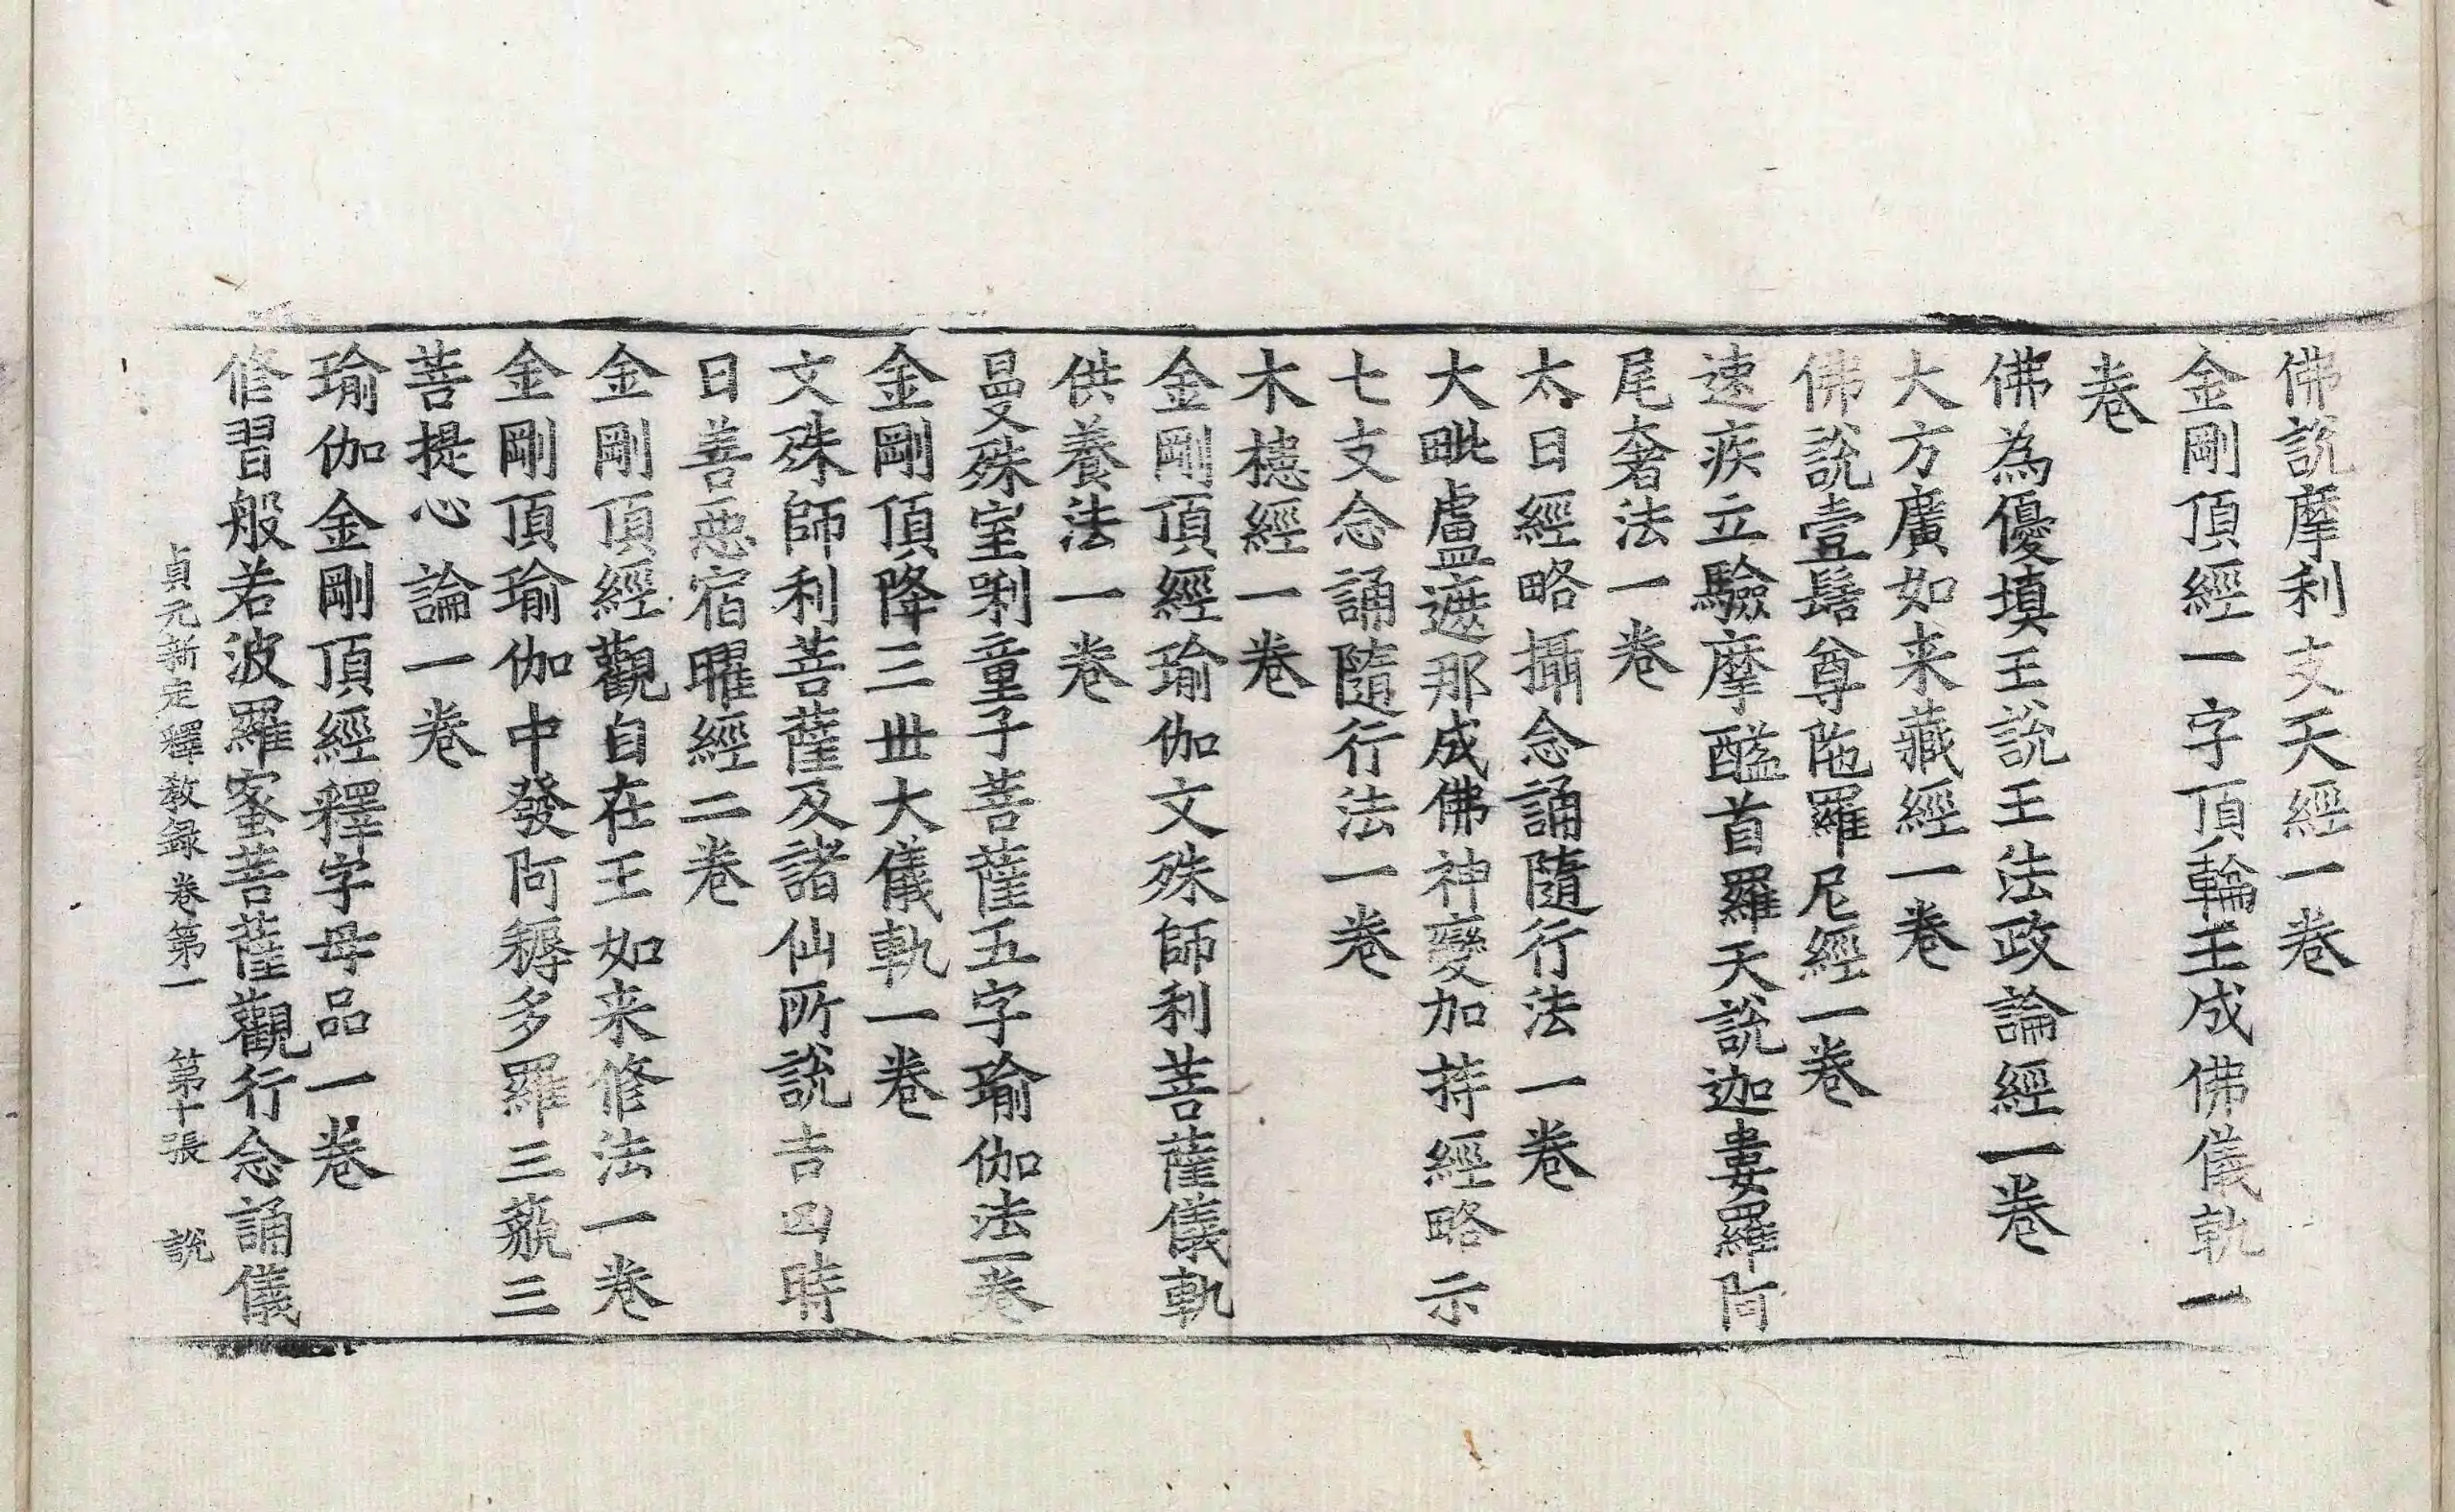 佛說摩利支天經一卷
金剛頂經一字頂輪王成佛儀軌一
卷
佛為優填王說王法政論經一卷
大方廣如来藏經一卷
佛說壹髻尊陁羅尼經一卷
速疾立驗摩醯首羅天說迦婁羅阿
尾奢法一卷
大日經略攝念誦隨行法一卷
大毗盧遮那成佛神變加持經略示
七支念誦隨行法一卷
木槵經一卷
金剛頂經瑜伽文殊師利菩薩儀軌
供養法一卷
曼殊室唎童子菩薩五字瑜伽法一卷
金剛頂降三世大儀軌一卷
文殊師利菩薩及諸仙所說吉凶時
日善惡宿曜經二卷
金剛頂經觀自在王如来修法一卷
金剛頂瑜伽中發阿耨多羅三藐三
菩提心論一卷
瑜伽金剛頂經釋字母品一卷
修習般若波羅蜜菩薩觀行念誦儀
貞元新定釋教録卷第一 第十張 說